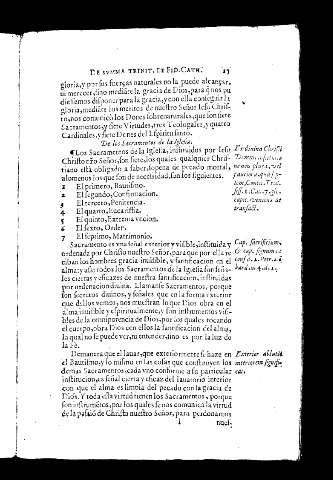 DE SVMMA TRINIT. ET FID. CATH. 23
gloria, y por sus fuerças naturales no la puede alcançar,
ni merecer, sino mediãte la gracia de Dios, para q̃ nos pu
diessemos disponer para la gracia, y con ella conseguir la
gloria, mediãte los meritos de nuestro Señor Iesu Chris-
to, nos comunicò los Dones sobrenaturales, que son siete
Sacramentos, y siete Virtudes, tres Teologales, y quatro
Cardinales, y siete Dones del Espiritu santo.
De los Sacramentos de la Iglesia.
¶Los Sacramentos de la Iglesia, instituidos por Iesu
Christo nr̃o Señor, son siete, los quales qualquier Chris-
tiano està obligado a saber, so pena de pecado mortal,
alomenos los que son de necessidad, son los siguientes.
1 El primero, Bautismo.
2 El segundo, Confirmacion.
3 El tercero, Penitencia.
4 El quarto, Eucaristia.
5 El quinto, Extrema vncion.
6 El sexto, Orden.
7 El septimo, Matrimonio.
Sacramento es vna señal exterior y visible, instituida y
ordenada por Christo nuestro Señor, para que por ella re
ciban los hombres gracia inuisible, y santificacion en el
alma: y assi todos los Sacramentos de la Iglesia son seña-
les ciertas y eficazes de nuestra santificacion, instituidas
por ordenacion diuina. Llamanse Sacramentos, porque
son secretos diuinos, y señales, que en la forma exterior
que dellos vemos, nos muestran lo que Dios obra en el
alma inuisible y espiritualmente, y son instrumentos visi-
bles de la omnipotencia de Dios, por los quales tocando
el cuerpo, obra Dios con ellos la santificacion del alma,
la qual no se puede ver, ni entender, sino es por la luz de
la Fè.
De manera que el lauar, que exteriormente se haze en
el Bautismo, y lo mismo en las cosas que constituyen los
demas Sacramentos, cada vno conforme a su particular
institucion, es señal cierta y eficaz del lauatorio interior
con que el alma es limpia del pecado con la gracia de
Dios. Y toda esta virtud tienen los Sacramentos, porque
son instrumẽtos, por los quales se nos comunica la virtud
de la passiõ de Christo nuestro Señor, para perdonarnos
nues-
Cap. sacrificium
Exterior ablutio
interiorem significat.